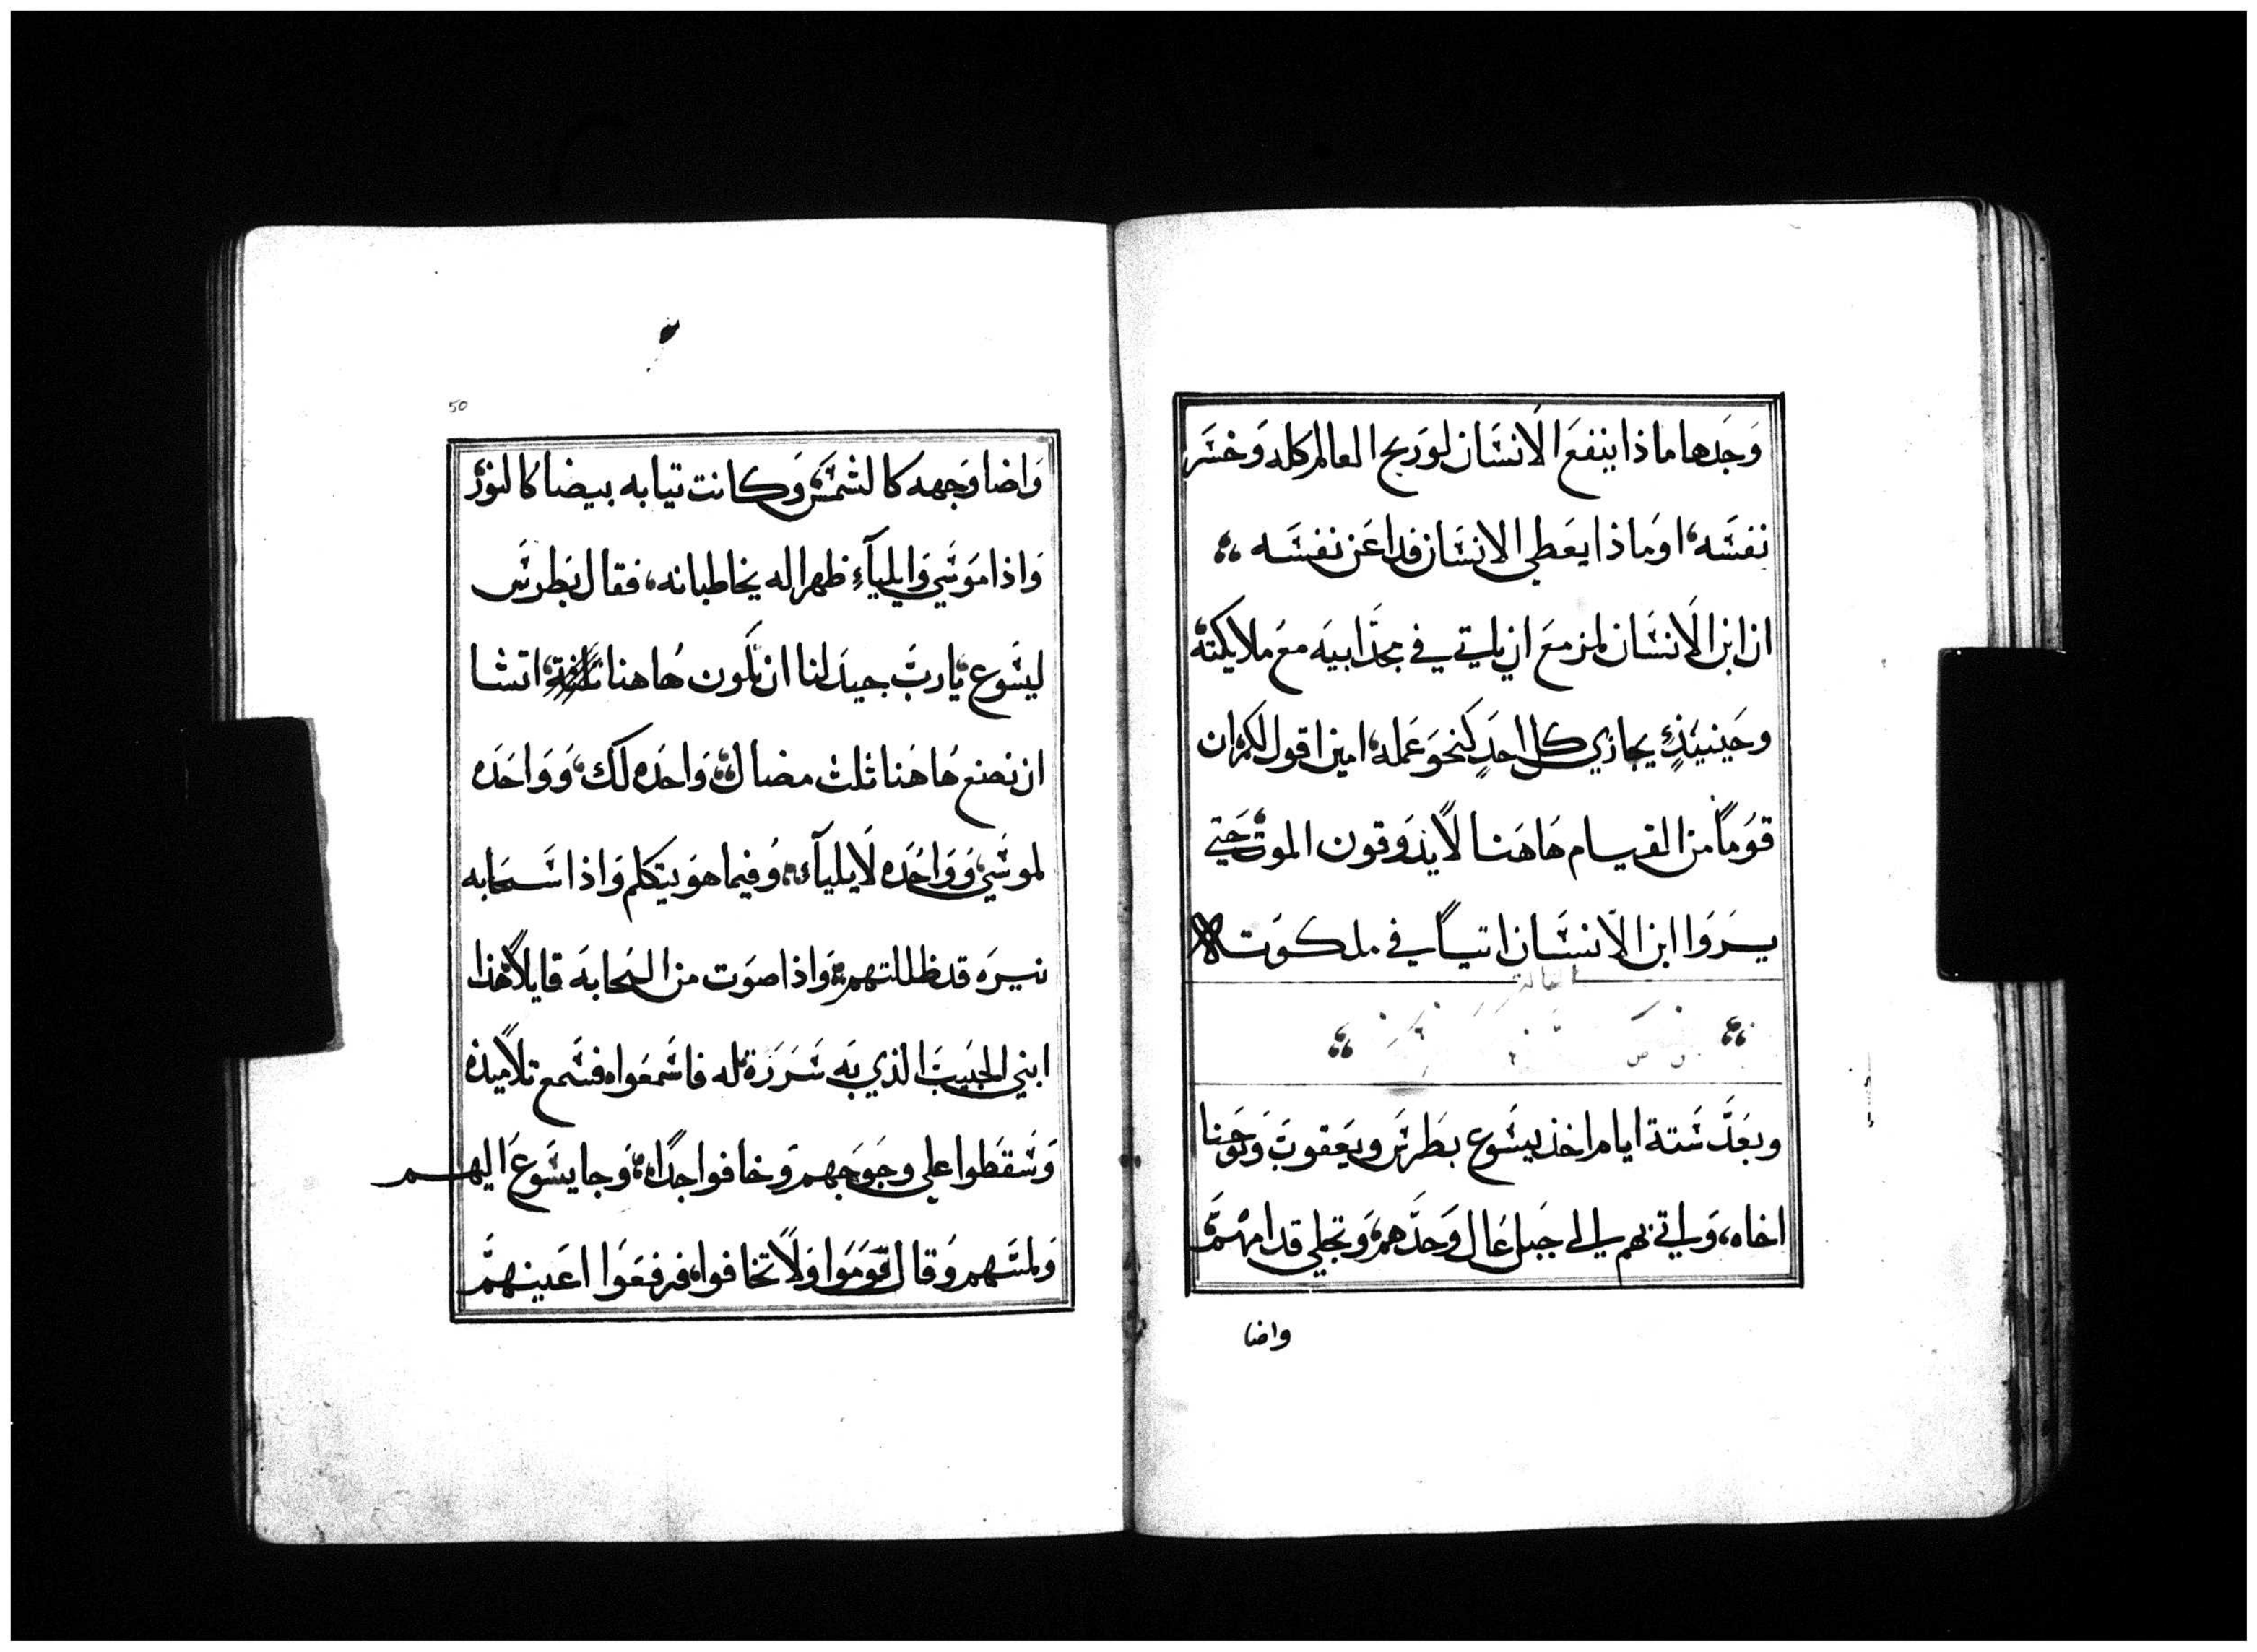 وَجَدها ماذا ينفعَ الَانسَان لورَبح العالم كله وَخسَر
نفسَه، اوَماذا يعَطي الانسَان فداعَن نفسَه
ان ابن الَانسَان لمزمعَ ان ياتي في مجدَابيهَ معَ ملايكتة
وحَينيَذٍ يجازي كل احدٍ كنحوَعَمله، امين اقول لكم ان
قوَماً من القيام هَاهَنا لاَيذوَقون الموت حَتي
يرَوَا ابن الاَنسَان اتياً في ملكوَت
وبعَدَ سَتة ايام اخذ يسَوع بطَرسَ ويعَقوبَ وَيوَحنا
اخاه، وَاتي بهم الي جَبل عَال وَحدَهم، وَتجلي قدامهَم
واضا
50
وَاضا وَجهه كالشمسَ، وَكانت تيابه بيضا كالنورَ
وَاذا موَسَي وَايلياَء ظهرا له يخاطبانه، فقال بَطرسَ
ليسَوع، يارَبَ جيدَ لنا ان نَكون هُاهنا، اتشا
ان نصنع هُاهَنا ثلث مضال، وَاحَده لك، وَوَاحَده
لموسَي، وَوَاحَده لَايلياَء، وَفيما هوَ يتكلم وَاذا سَحَابه
نيرَه قد ظللتهم، وَاذا صوَت من السَحابهَ قايلاً هذا
ابني الحَبيَبَ الذي بهَ سَرَرَة، له فاسَمعَوا، فسَمع تلاَميذه
وَسَقطَوا علي وجوَجَهم وَخافوا جداً، وَجا يسَوعَ اليهم
وَلمسَهم وَقال قوَموَا وَلاَ تخافوا، فرفعَوَا اعَينهمَ